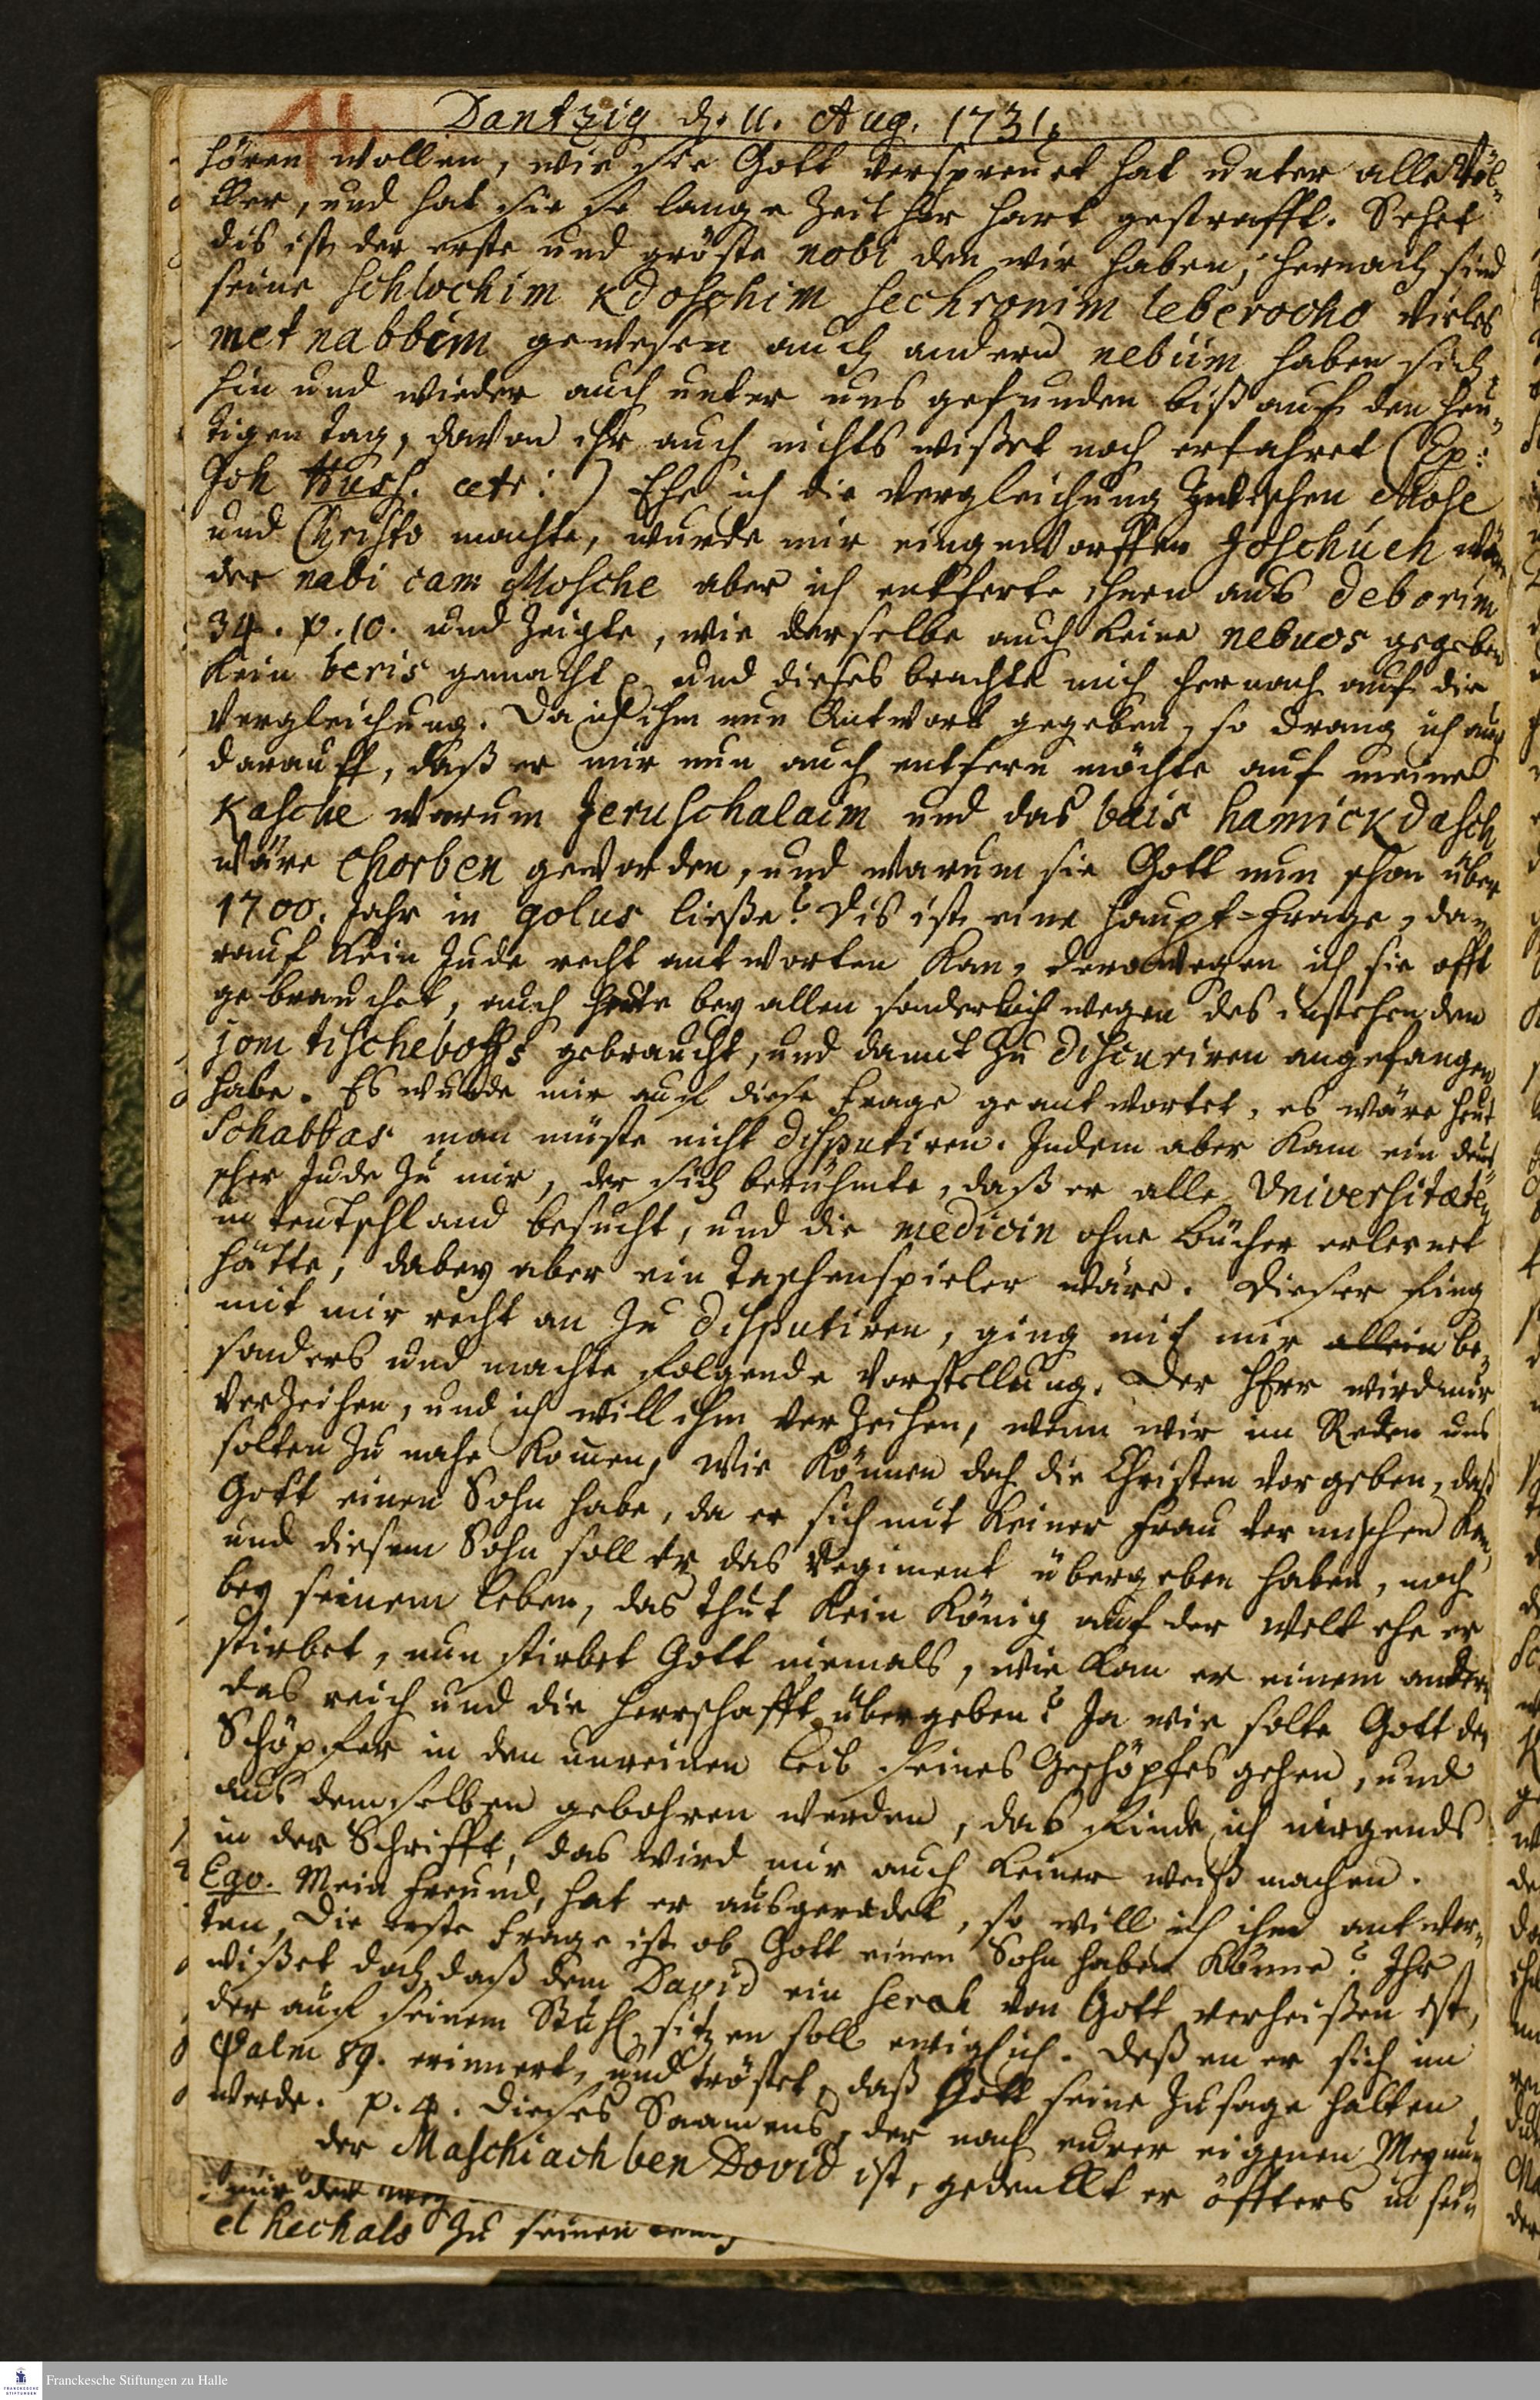 41.
Dantzig d. 11. Aug. 1731.
hören wollen, wie sie Gott verspreuet hat unter alle Völ-
cker, und hat sie so lange Zeit her hart gestrafft. Sehet
dis ist der erste und gröste nobi den wir haben, hernach sind
seine schlochim kdoschim sechronim leberocho vieles
met nabbim gewesen auch andern nebiim haben sich
hin und wieder auch unter uns gefunden biß auf den heu-
tigen tag, davon ihr auch nichts wißet noch erfahret (Ex:
Joh Huss. cetr:) Ehe ich die Vergleichung zwischen Mose
und Christo machte, wurde mir eingeworffen Joschuch wäre
der nabi cam Mosche aber ich entferte ihnen aus deborim
34. p. 10. und zeigte, wie derselbe auch keine nebuos gegeben
kein beris gemacht und dieses brachte mich hernach auf die
Vergleichung. Da ich ihm nun Antwort gegeben, so drang ich auch
darauff, daß er mir nun auch entfern möchte auf meine
Kasche warum Jeruschalaim und das bais hammickdasch
wäre chorben geworden, und warum sie Gott nun schon über
1700. Jahr in golus ließe? Dis ist eine haupt-frage, da-
rauf kein Jude recht antworten kan, derowegen ich sie offt
gebrauchet, auch heute bey allen sonderlich wegen des instehenden
jom tischeboffs gebraucht, und damit zu discuriren angefangen
habe. Es wurde mir auf diese frage geantwortet, es wäre heut
Schabbas man müste nicht disputiren. Indem aber kam ein deut-
scher Jude zu mir, der sich berühmte, daß er alle Universitæten
in teutschland besucht, und die medicin ohne bücher erlernet
hätte, dabey aber ein taschenspieler wäre. Dieser fing
mit mir recht an zu disputiren, ging mit mir allein be-
sonders und machte folgende Vorstellung. Der Herr wird mir
verzeihen, und ich will ihm verzeihen, wenn wir im Reden uns
solten zu nahe komen, wie können doch die Christen vorgeben, daß
Gott einen Sohn habe, da er sich mit keiner frau vermischen kan,
und diesem Sohn soll er das Regiment übergeben haben, noch
bey seinem leben, das thut kein König auf der Welt ehe er
stirbet, nun stirbet Gott niemals, wie kan er einem andern
das reich und die herrschafft übergeben? Ja wie solte Gott der
Schöpfer in den unreinen leib seines Geschöpfes gehen, und
aus demselben gebohren werden, das finde ich nirgends
in der Schrifft, das wird mir auch keiner weiß machen.
Ego. Mein freund, hat er ausgeredet, so will ich ihm antwor-
ten, Die erste frage ist ob Gott einen Sohn haben könne? Ihr
wißet doch, daß dem David ein serah von Gott verheißen ist,
der auf seinem Stuhl sitzen soll ewiglich. Deßen er sich im
Psalm 89. erinnert, und tröstet, daß Gott seine Zusage halten
werde. p. 4. Dieses Saamens, der nach eurer eigenen Meynung
der Maschiach ben Dovid ist, gedenckt er öffters in sein
mir der weg
el hechals zu seinen
Franckesche Stiftungen zu Halle